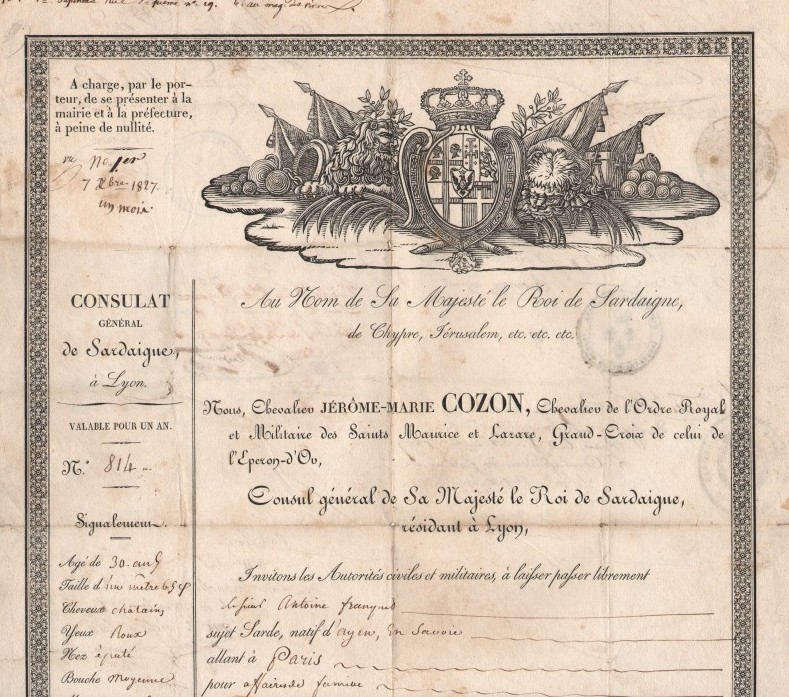 rue n.º 29.
A charge, par le por-
teur, de se présenter à la
mairie et à la préfecture,
à peine de nullité.
7 Xbre 1827.
un mois
CONSULAT
GÉNÉRAL
de Sardaigne,
à Lyon.
VALABLE POUR UN AN.
N.º 814
Signalement.
Agé de 30. ans
Taille d'un mètre 65 c
Cheveux châtains
Yeux Roux
Nez épaté
Bouche moyenne
Au Nom de Sa Majesté le Roi de Sardaigne,
de Chypre, Jérusalem, etc. etc. etc.
Nous, Chevalier JÉRÔME-MARIE COZON, Chevalier de l'Ordre Royal
et Militaire des Saints Maurice et Lazare, Grand-Croix de celui de
l'Eperon-d'Or,
Consul général de Sa Majesté le Roi de Sardaigne,
résidant à Lyon,
Invitons les Autorités civiles et militaires, à laisser passer librement
le sieur Antoine
sujet Sarde, natif d'ayen, En Savoie
allant à Paris
pour affaires de famille